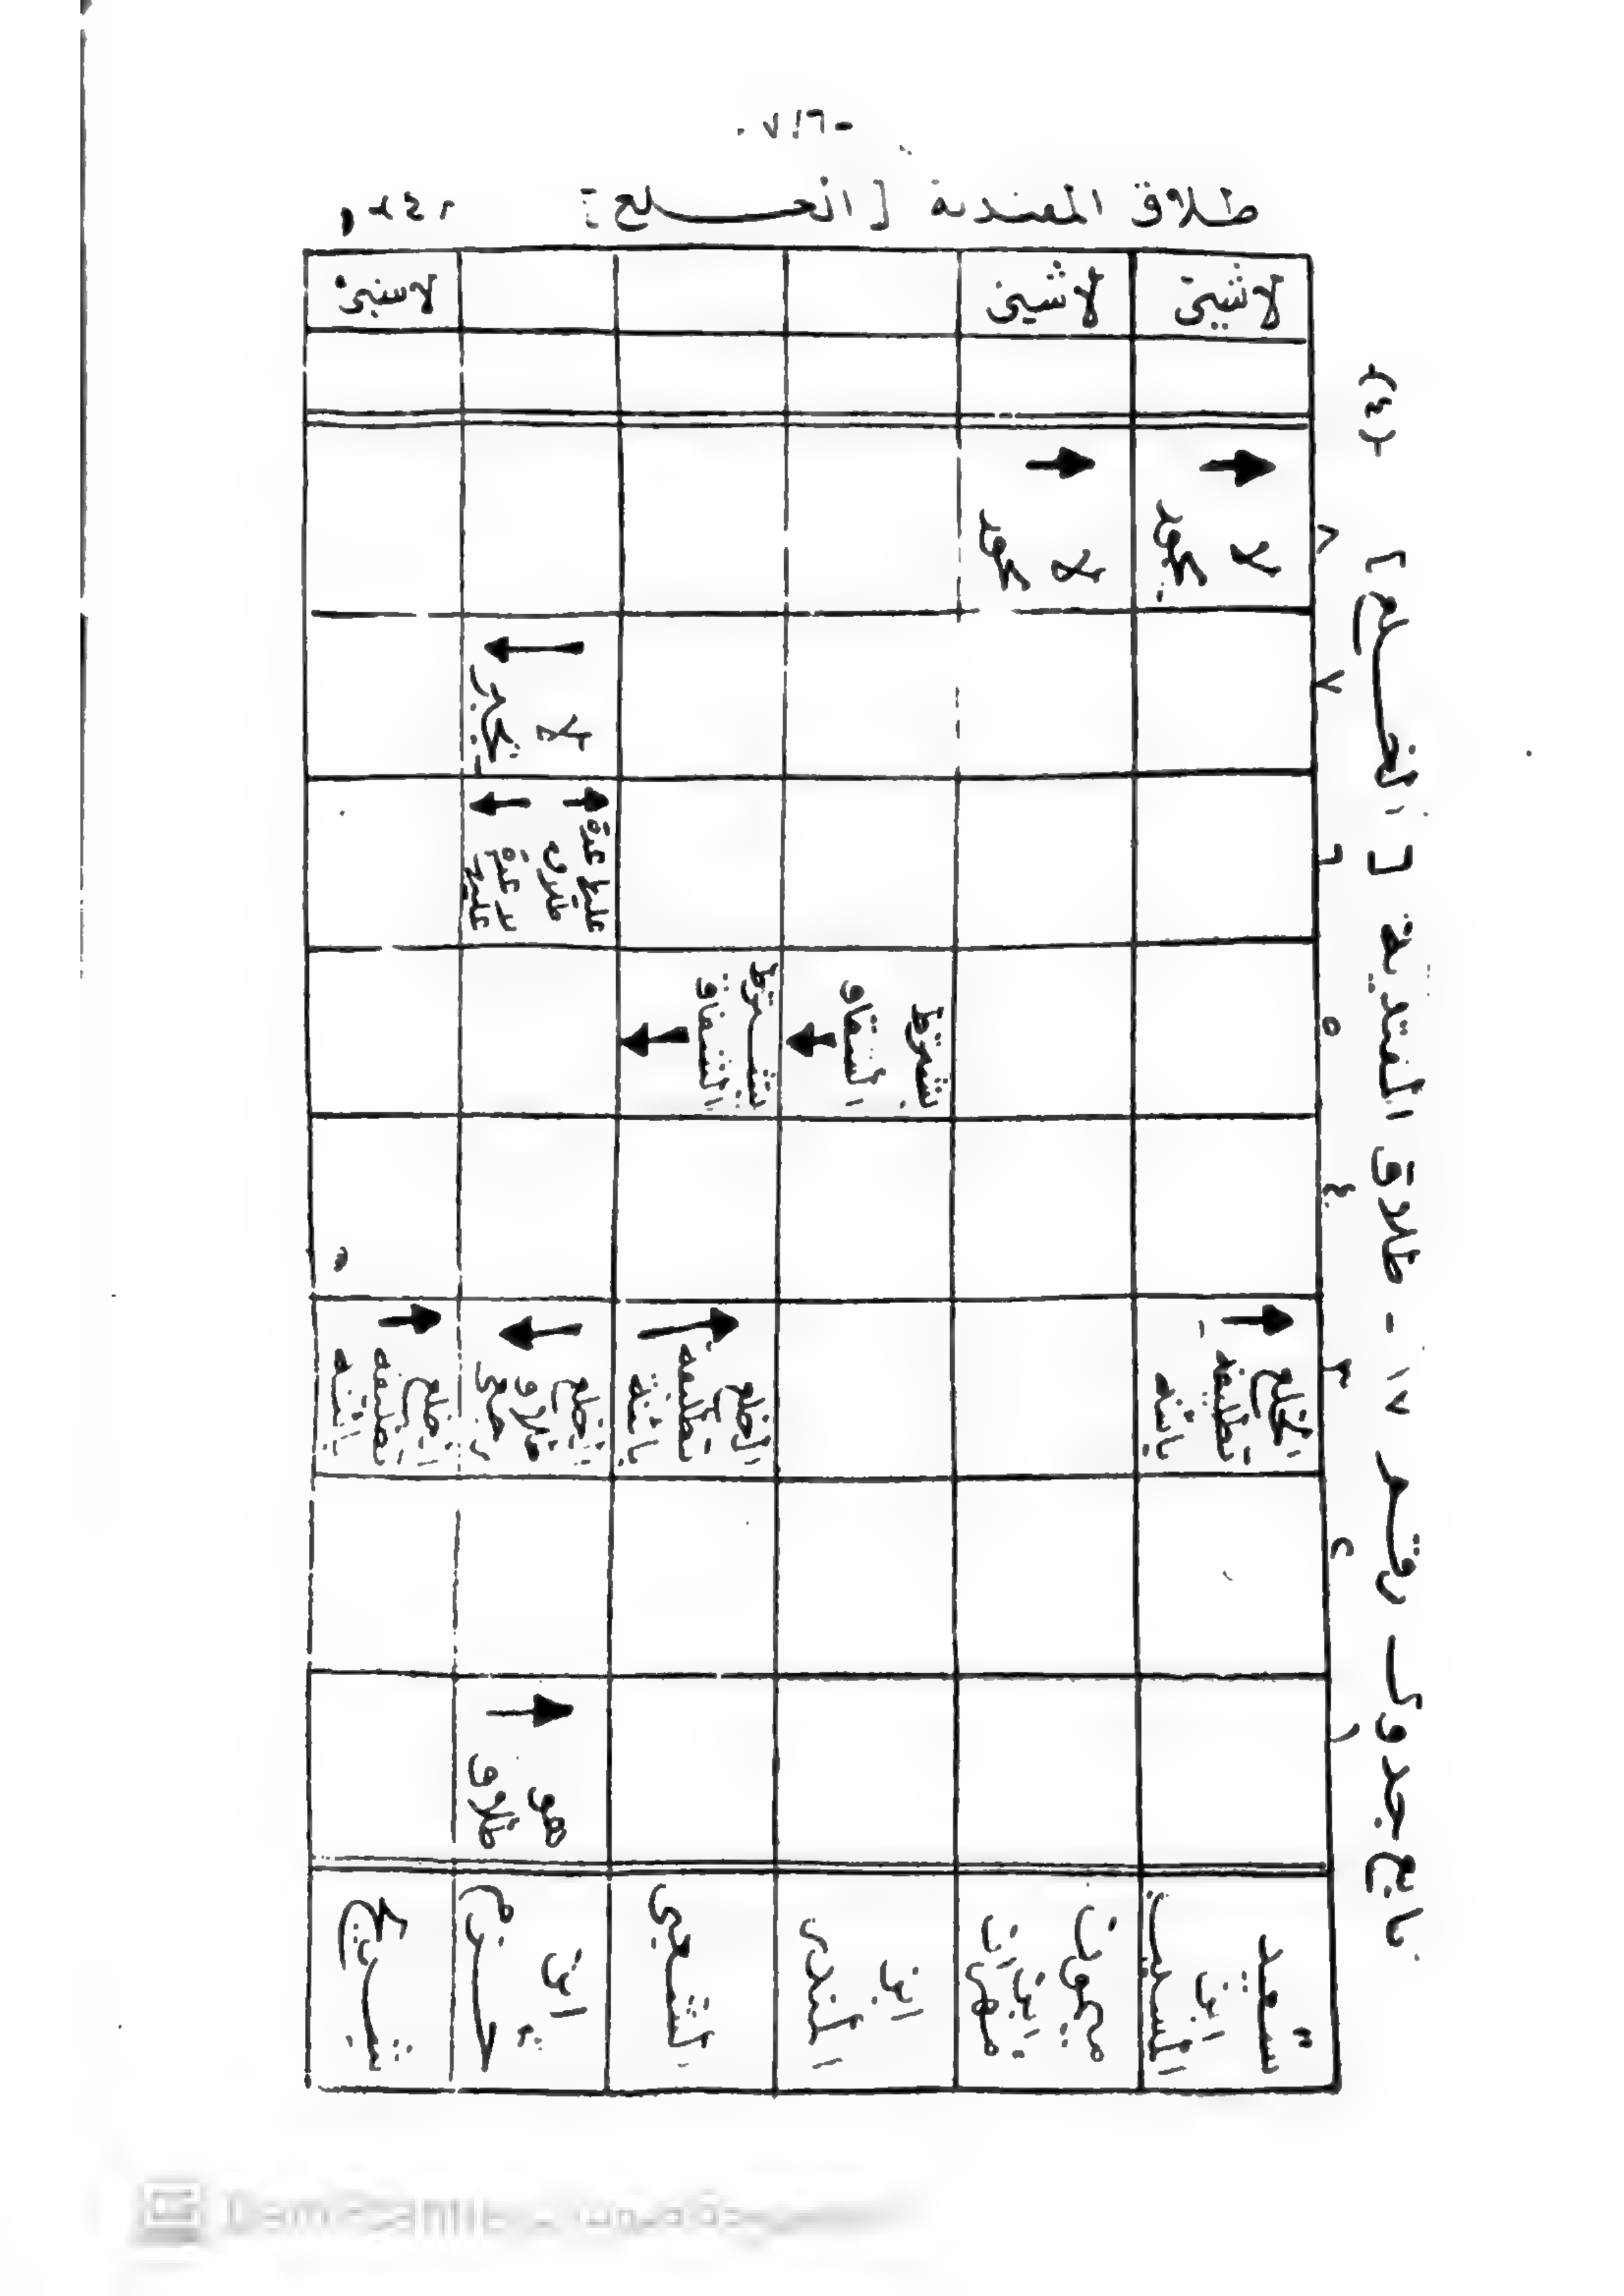 -٦١٧-
طلاق المفتدية [الخلع]
تابع جدول رقم ١٧ - طلاق المفتدية [الخلع] (٤)
١ ٢ ٣ ٤ ٥ ٦ ٧ ٨
سعيد ابن المسيب
الخلع تطليقة بائنة
لا يجوز
لا شيئ
ميمون ابن مهران
لا يجوز
لا شيئ
ابن المنذر
يشترط الشقاق
الشعبي
الخلع تطليقة بائنة
يشترط الشقاق
ابن حزم
هو طلاق
الخلع طلاق رجعي
عليها عدة طلاق
لا عدة عليها
لا يجبر
شريح
الخلع تطليقة بائنة